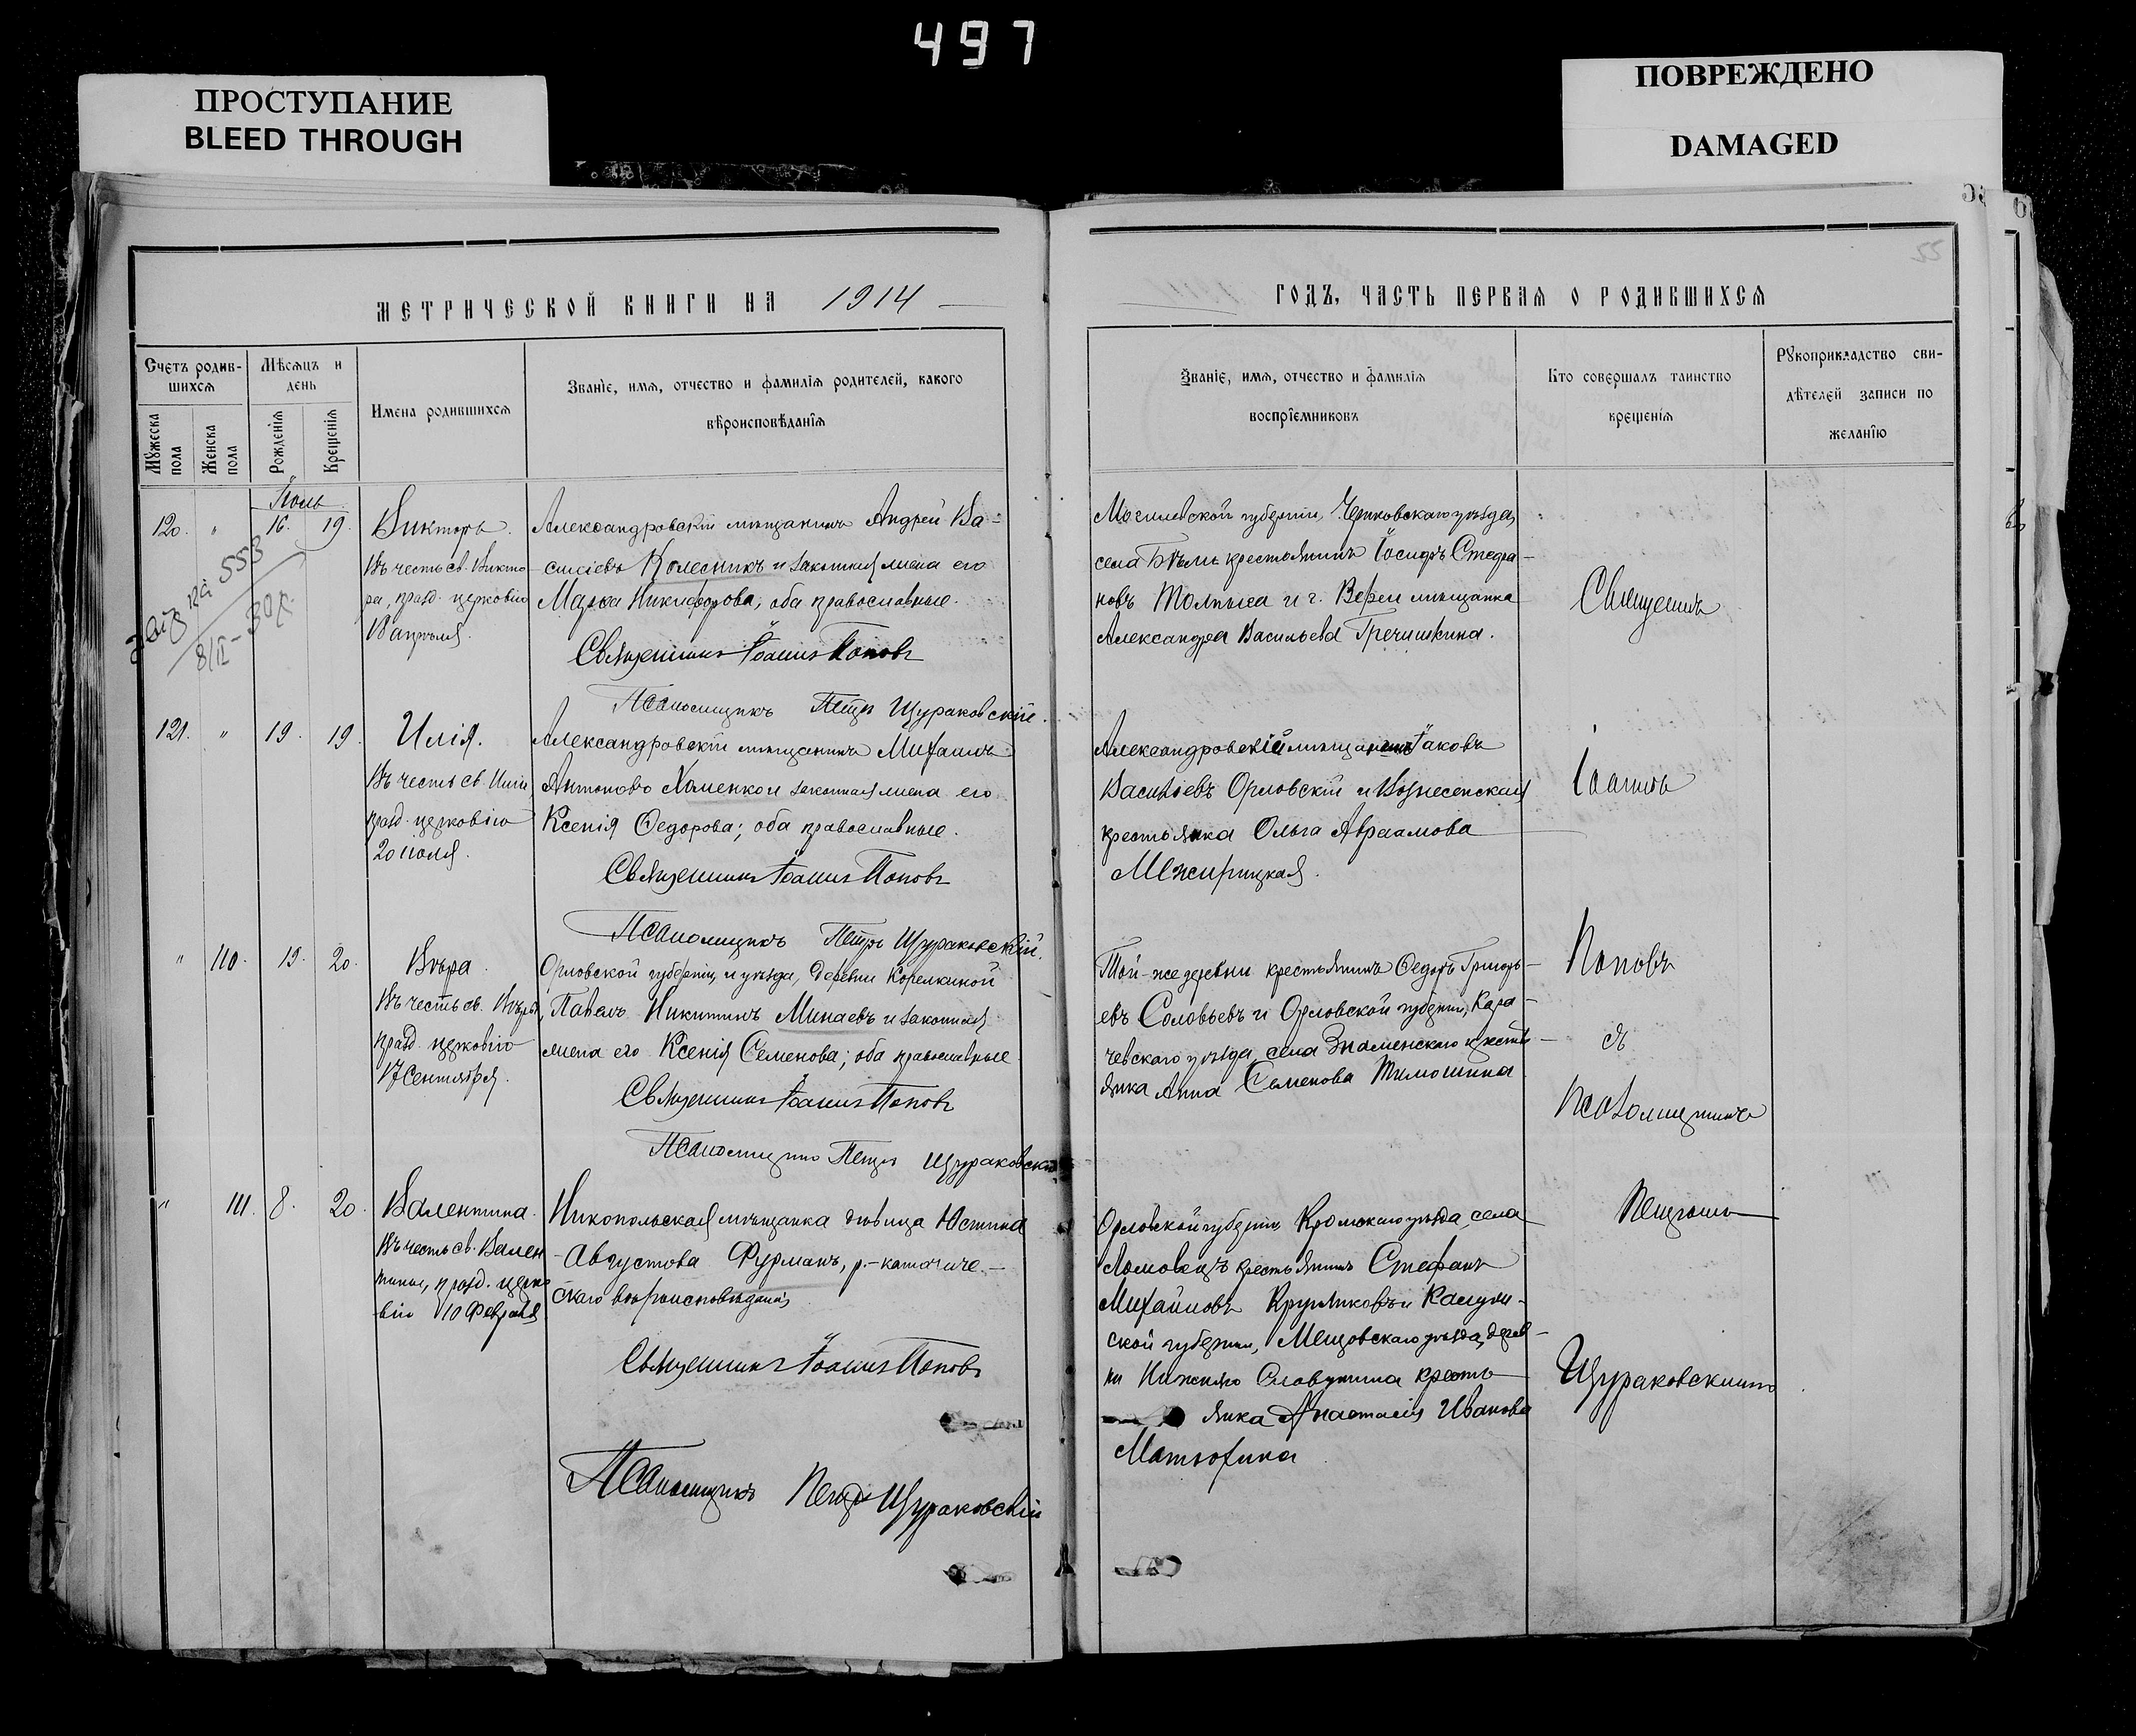 497
ПРОСТУПАНИЕ
BLEED THROUGH
ПОВРЕЖДЕНО
DAMAGED
55
МЕТРИЧЕСКОЙ КНИГИ НА 1914
ГОДЪ, ЧАСТЬ ПЕРВАЯ О РОДИВШИХСЯ
Счетъ родив-
шихся
Мѣсяцъ и
день
Мужеска
пола
Женска
пола
Рожденія
Крещенія
Имена родившихся
Званіе, имя, отчество и фамилія родителей, какого
вѣроисповѣданія
Званіе, имя, отчество и фамилія
воспріемниковъ
Кто совершалъ таинство
крещенія
Рукоприкладство сви-
дѣтелей записи по
желанію
Іюль
120. " 16. 19.
Викторъ.
Въ честь св. Викто-
ра, празд. церковію
Апрѣля.
553
8/II - 30 г.
Александровскій мѣщанинъ Андрей Ва-
силіевъ Колесникъ и законная жена его
Марѳа Никифорова, оба православные.
Священникъ Іоаннъ Поповъ
Псаломщикъ Петръ Щураковскій.
Могилевской губерніи, Чериковскаго уѣзда,
села крестьянинъ Іосифъ Стефа-
новъ Толпыга и г. мѣщанка
Александра Васильева Гречишкина.
121. " 19. 19.
Илія.
Въ честь св. Иліи,
празд. церковію
20 іюля.
Александровскій мѣщанинъ Михаилъ
Антоновъ Хоменко и законная жена его
Ксенія Ѳедорова; оба православные.
Священникъ Іоаннъ Поповъ
Псаломщикъ Петръ Щураковскій.
Александровскій мѣщанинъ Іаковъ
Василіевъ Орловскій и Вознесенская
крестьянка Ольга Авраамова
Межирицкая.
" 110. 19. 20.
Вѣра.
Въ честь св. Вѣры,
празд. церковію
17 Сентября.
Орловской губерніи, и уѣзда, деревни Корелкиной
Павелъ Никитинъ Минаевъ и законная
жена его Ксенія Семенова; оба православные
Священникъ Іоаннъ Поповъ
Псаломщикъ Петръ Щураковскій
Той-же деревни крестьянинъ Ѳедоръ Григорь-
евъ Соловьевъ и Орловской губерніи, Кара-
чевскаго уѣзда, села Знаменскаго крестья-
янка Анна Семенова Тимошина
" 111. 8. 20.
Валентина.
Въ честь св. Вален-
тины, празд. церко-
вію 10 Февраля
Никопольская мѣщанка дѣвица Юстина
Августова Фурманъ, р.-католиче-
скаго вѣроисповѣданія
Священникъ Іоаннъ Поповъ
Псаломщикъ Петръ Щураковскій
Орловской губерніи Кромскаго уѣзда, села
Ломовецъ крестьянинъ Стефанъ
Михайловъ Кругликовъ и Калуж-
ской губерніи, Мещовскаго уѣзда, дерев-
ни кресть-
янка Анастасія Иванова
Матюхина
Священникъ
Іоаннъ
Поповъ
съ
Псаломщикомъ
Петромъ
Щураковскимъ